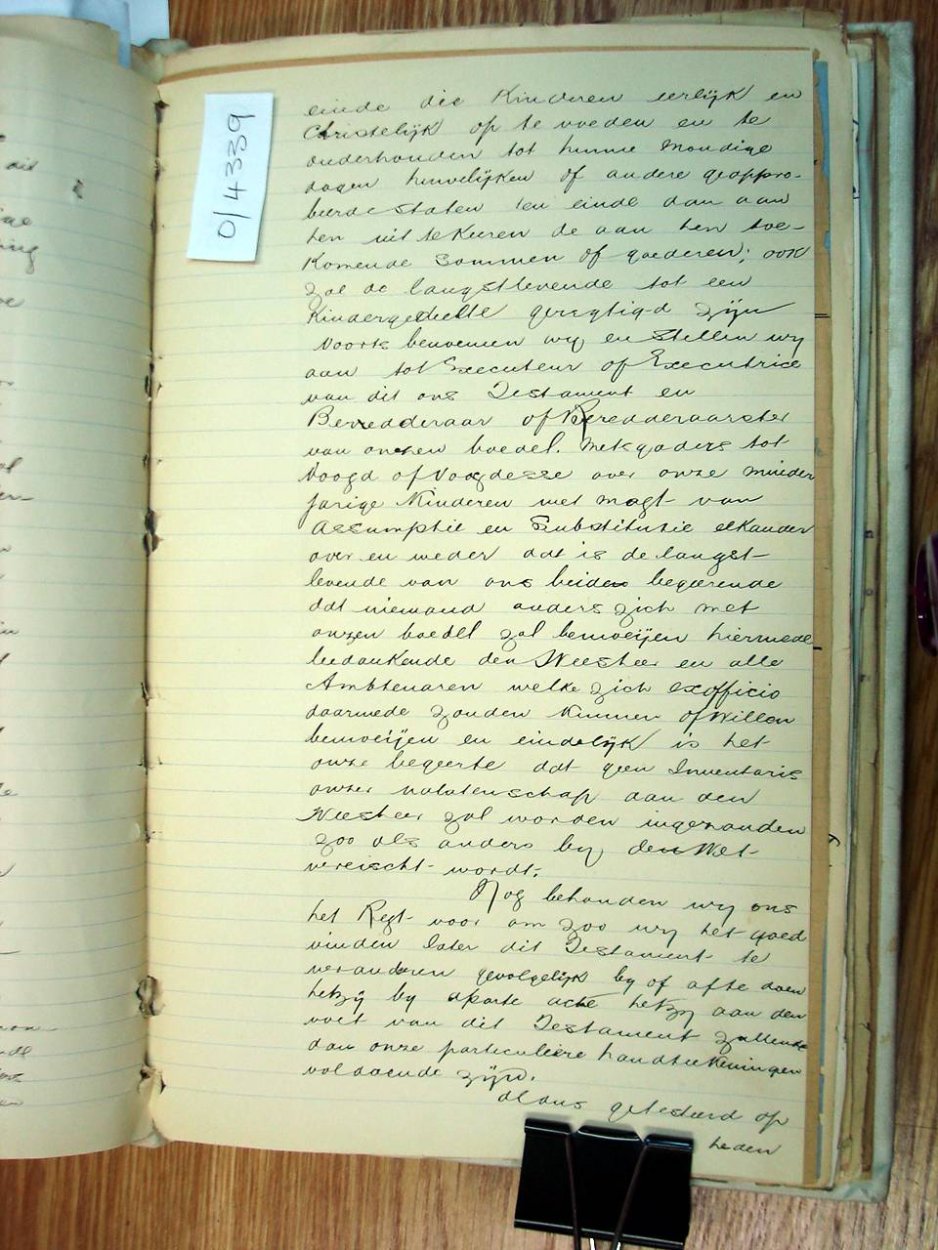 0/4339
einde die Kinderen eerlijk en
Christelijk op te voeden en te
onderhouden tot hunne mondige
dagen huwelijken of andere geappro-
beerde Staten ten einde dan aan
hen uit te Keeren de aan hen toe-
Komende Sommen of goederen; ook
zal de langstlevende tot een
Kindergedeelte geregtigd zijn
Voorts benoemen wy en Stellen wy
aan tot Executeur of Executrice
van dit ons Testament en
Berredderaar of Beredderaarster
van onzen boedel. Mitsgaders tot
Voogd of Voogdesse over onze minder
jarige Kinderen met magt van
Assumptie en Substitutie elkander
over en weder dat is de langst-
levende van ons beiden begeerende
dat niemand anders zich met
onzen boedel zal bemoeijen hiermede
bedankende den Weesheer en alle
Ambtenaren welke zich exofficio
daarmede zouden Kunnen of Willen
bemoeijen en eindelijk is het
onze begeerte dat geen Inventaris
onzer nalatenschap aan den
Weesheer zal worden ingezonden
zoo als anders by den Wet
vereischt wordt.
Nog behouden wy ons
het Regt voor om zoo wy het goed
vinden later dit Testament te
veranderen gevolgelijk by of afte doen
hetzij by aparte acte hetzy aan den
voet van dit Testament zullende
dan onze particuliere handteekeningen
voldoende zijn.
Aldus getesteerd op
heden